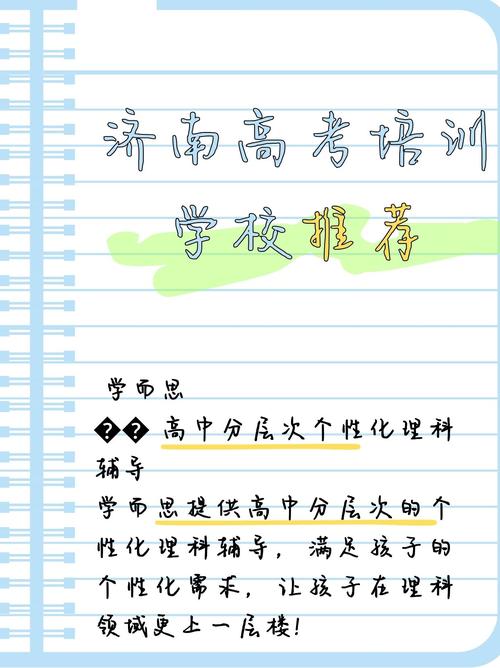 济南高考培训
学校推荐
学而思
�� 高中分层次个性化理科
辅导
学而思提供高中分层次的个
性化理科辅导，满足孩子的
个性化需求，让孩子在理科
领域更上一层楼！